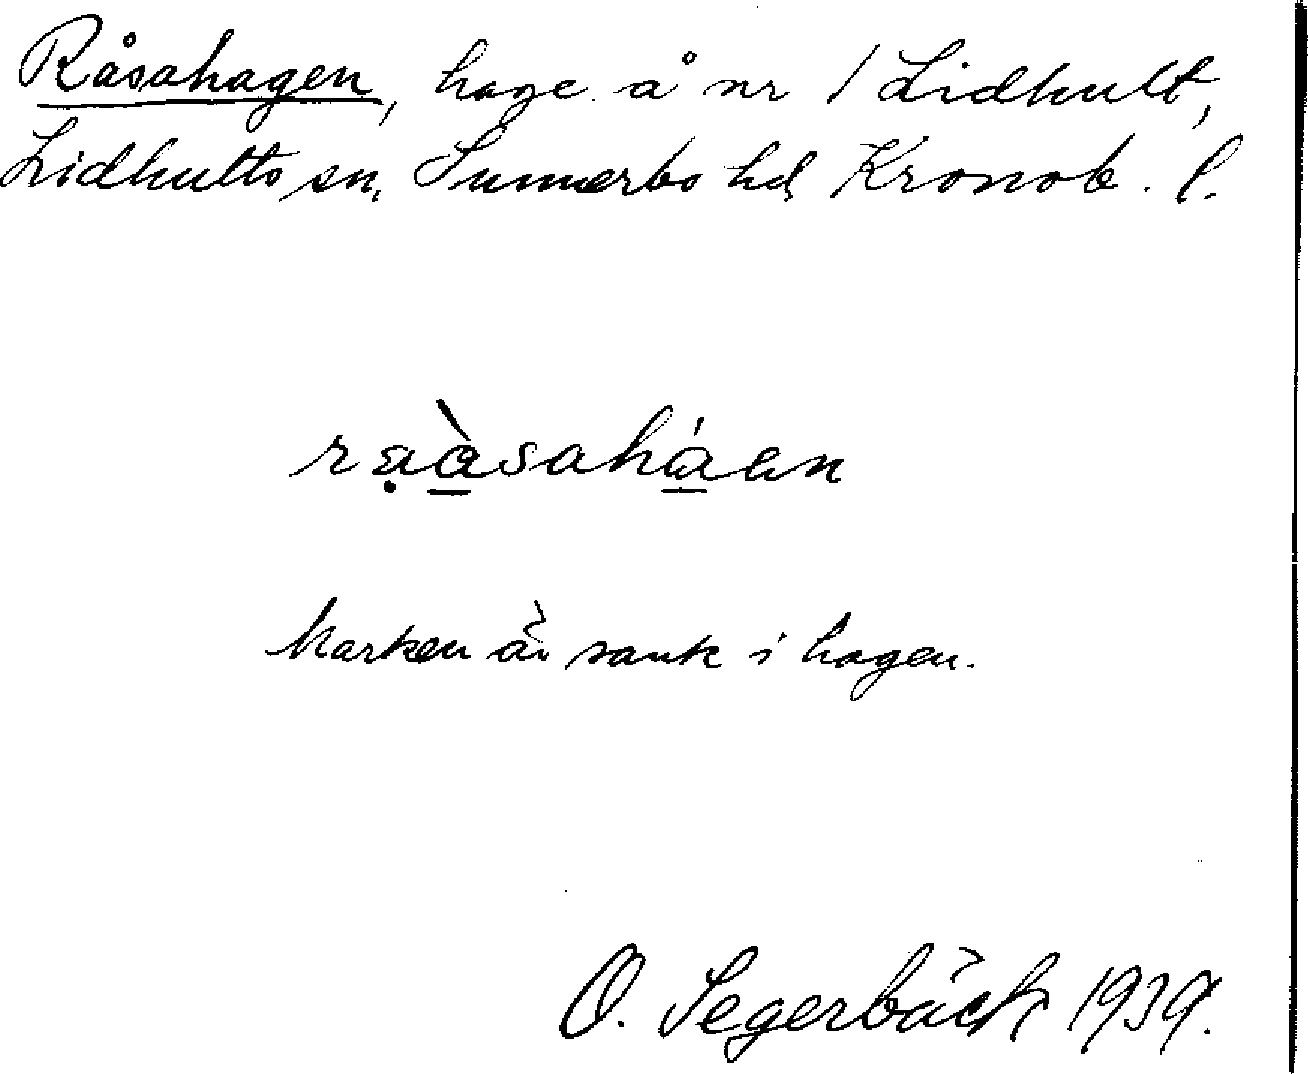 Råsahagen, hage å nr 1 Lidhult,
Lidhults sn, Sunnerbo hd, Kronob. l.
rạà̱sahá̱en
Marken är sank i hagen.
O. Segerbäck 1939.